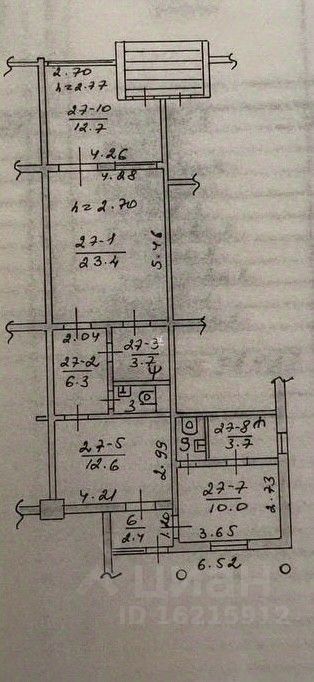 2.70
h=2.77
27-10
12.7
4.26
4.28
h=2.70
27-1
23.4
5.46
2.04
27-2
6.3
27-3
3.7
4
3
27-5
12.6
2.99
4.21
27-8
3.7
9
27-7
10.0
2.73
3.65
6
2.4
6.52
ЦИАН
ID 16215912